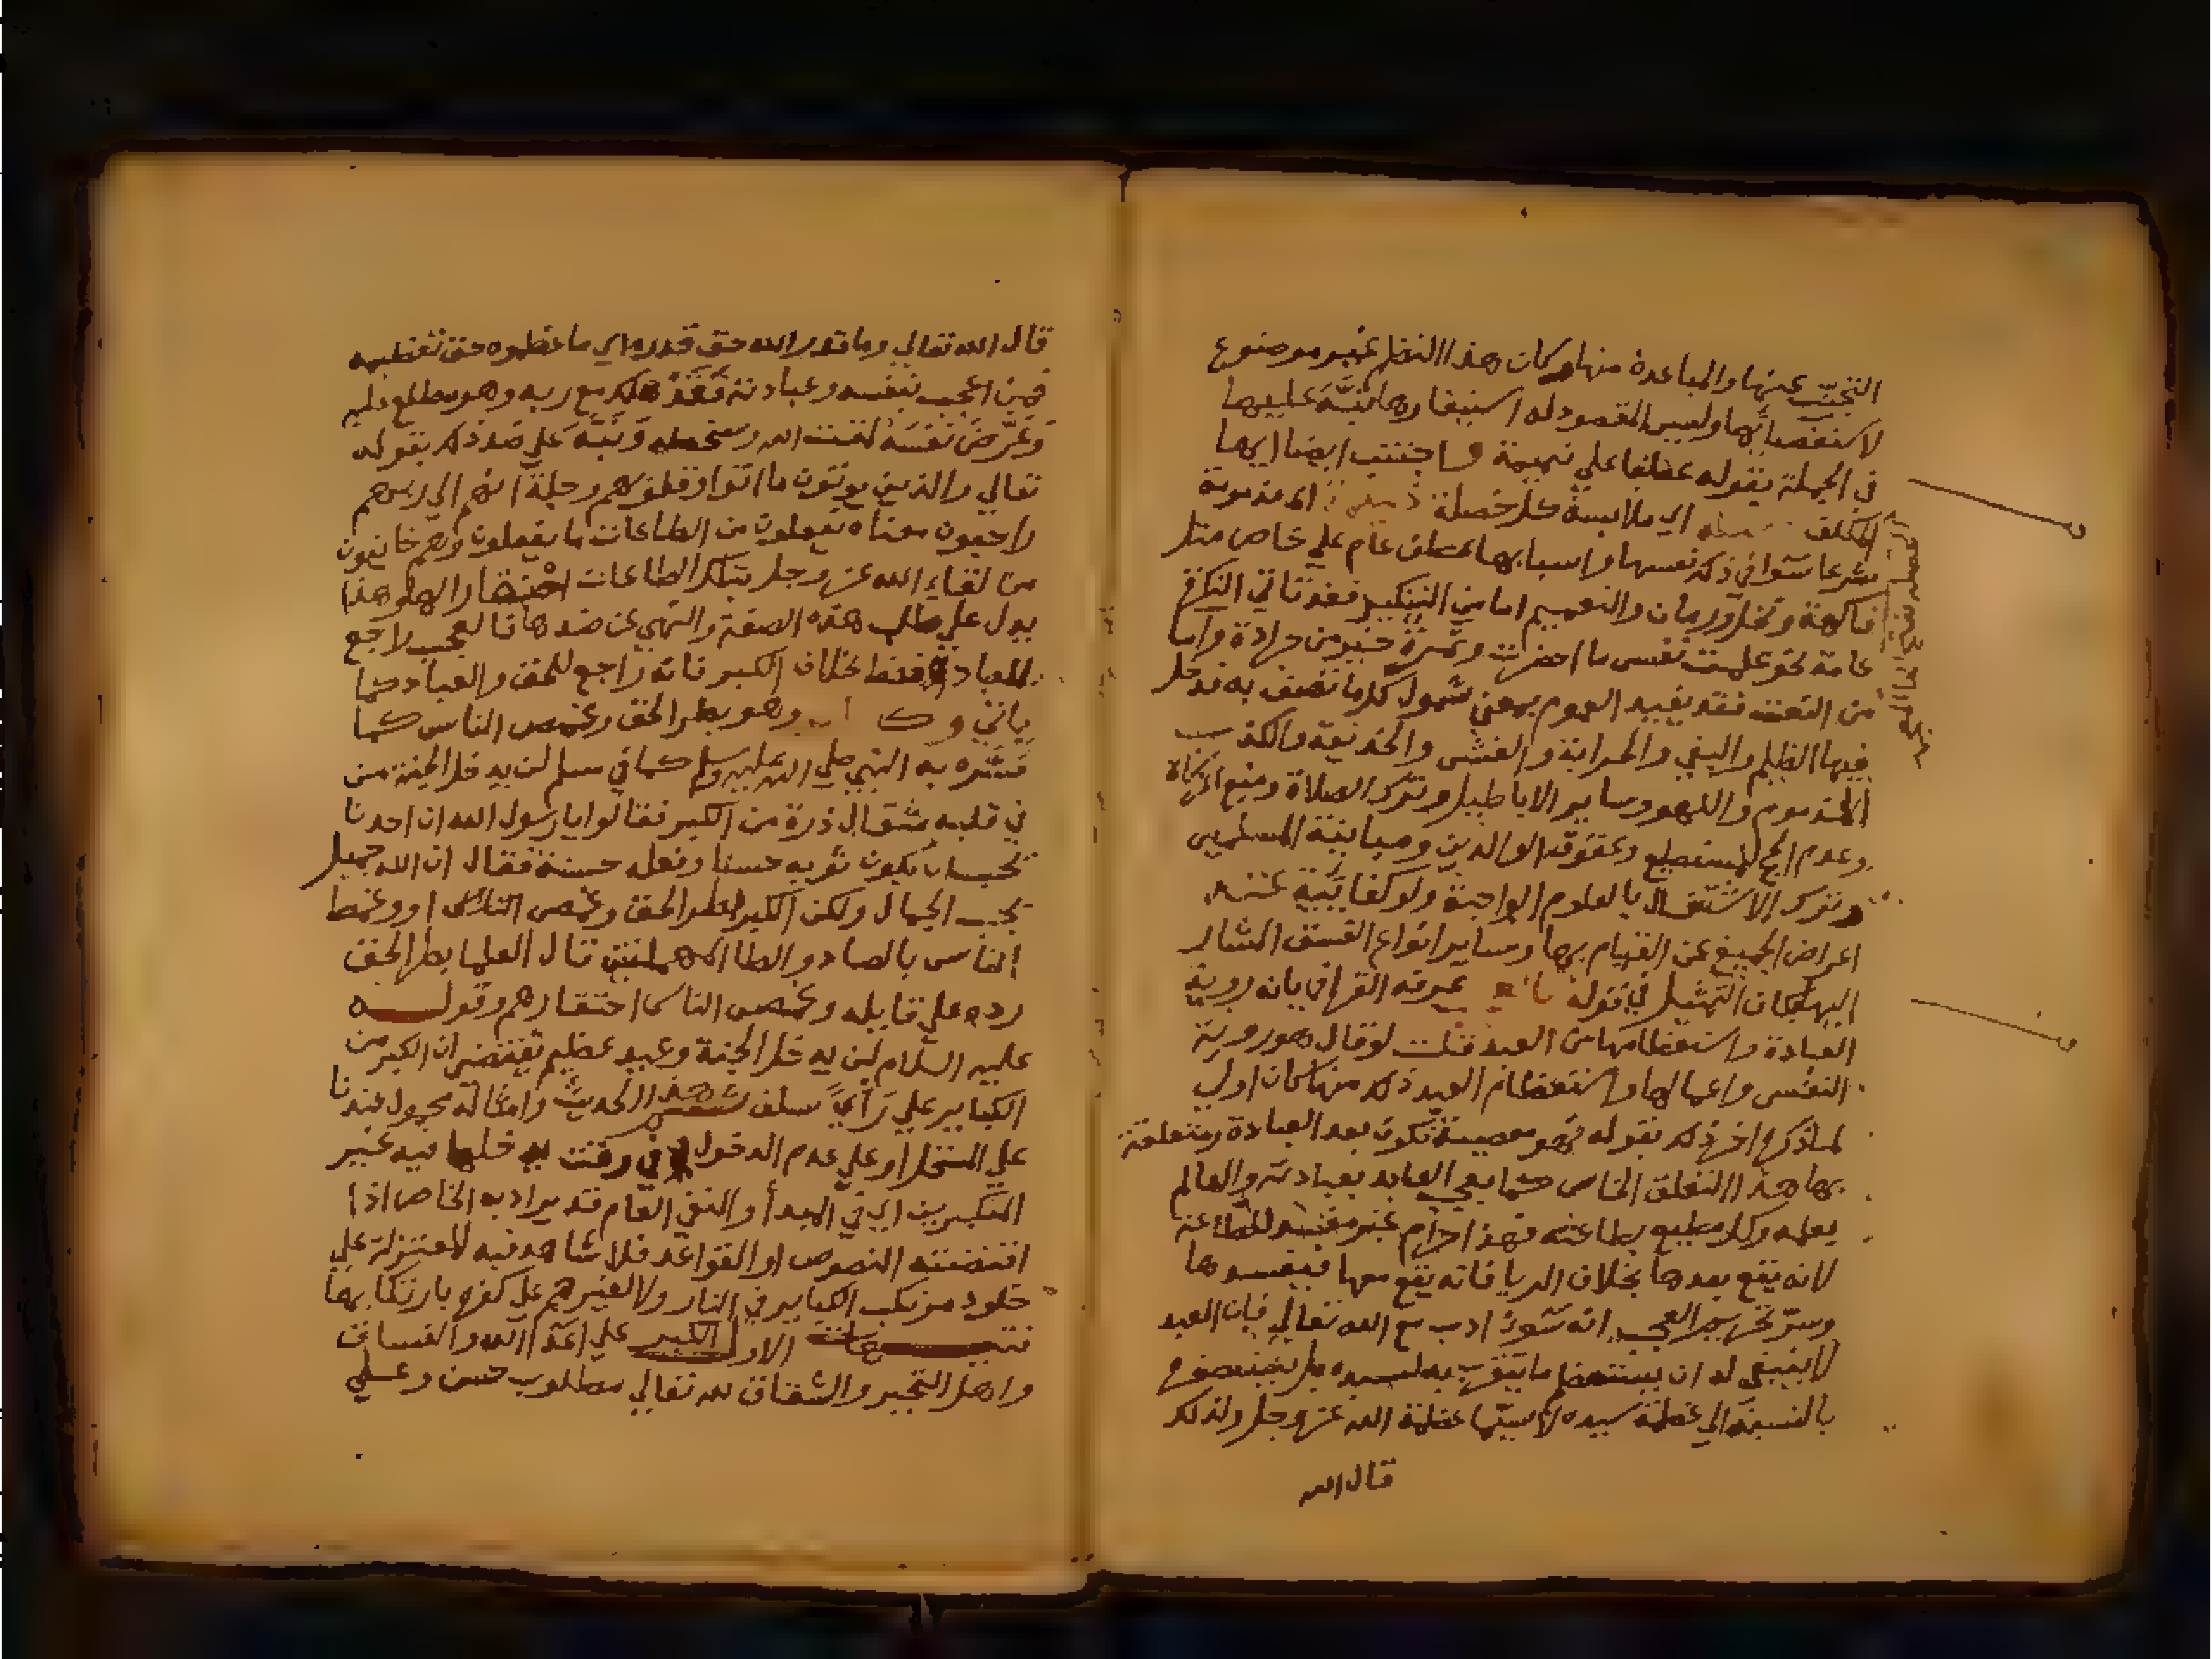 التجنب عنها والمباعدة منها وكان هذا النظم غير موضوع
لاستقصائها وليس المقصود له استيفاءها نبه عليها
في الجملة بقوله عطفا على نميمة واجتنب ايضا ايها
المكلف اي ملابسة كل خصلة المذمومة
شرعا سوا في ذكر نفسها واسبابها عطف عام علي خاص مثل
فاكهة ونخل ورمان والتعميم اما من التنكير فقد تاتي النكرة
عامة نحو علمت نفس ما احضرت وتمرة خير من جرادة واما
من النعت فقد يفيد العموم بمعني شمول كلما تصف به فدخل
فيها الظلم والبغي والحرابة والغش والخديعة والكذب
المذموم واللهو وساير الاباطيل وترك الصلاة ومنع الزكاة
وعدم الحج لمستطيع وعقوق الوالدين ومباينة المسلمين
وترك الاشتغال بالعلوم الواجبة ولو كفايية عند
اعراض الجميع عن القيام بها وساير انواع الفسق المشار
اليها بكاف التمثيل في قوله عرفه القرافي بانه روية
العبادة واستعظامها من العبد قلت لو قال هو روية
النفس واعمالها واستعظام العبد ذكر منها كان اولي
لما ذكره اخر ذكر بقوله فهو معصية تكون بعد العبادة ومتعلقة
بها هذا التعلق الخاص كما يعجب العابد بعبادته والعالم
بعلمه وكل مطيع بطاعته فهذا حرام غير مفسد للطاعة
لانه يقع بعدها بخلاف الريا فانه يقع معها فيفسدها
وسر تحريم العجب انه سوء ادب مع الله تعالي فان العبد
لا ينبغي له ان يستعظم ما يتقرب به لسيده بل يستصغره
بالنسبة الي عظمة سيده لاسيما عظمة الله عز وجل ولذلك
قال الله
قال الله تعالي وما قدروا الله حق قدره اي ما عظموه حق تعظيمه
فمن اعجب بنفسه وعبادته فقد هلك مع ربه وهو مطلع عليه
وعرض نفسه لمقت الله وسخطه ونبه علي ضد ذلك بقوله
تعالي والذين يوتون ما اتوا وقلوبهم وجلة انهم الي ربهم
راجعون معناه يفعلون من الطاعات ما يفعلون وهم خايفون
من لقاء الله عز وجل بتلك الطاعات احتقارا لها وهذا
يدل علي طلب هذه الصفة والنهي عن ضدها فالعجب راجع
للعباد فقط بخلاف الكبر فانه راجع للخلق والعباد كما
ياتي و وهو بطر الحق وغمص الناس كما
فسره به النبي صلي الله عليه وسلم كما في مسلم لن يدخل الجنة من
في قلبه مثقال ذرة من الكبر فقالوا يا رسول الله ان احدنا
يحب ان يكون ثوبه حسنا ونعله حسنة فقال ان الله جميل
يحب الجمال ولكن الكبر بطر الحق وغمص الناس او وغمط
الناس بالصاد والطا المهملتين قال العلما بطر الحق
رده علي قايله وغمص الناس احتقارهم وقوله
عليه السلام لن يدخل الجنة وعيد عظيم يقتضي ان الكبر من
الكباير علي راي سلف هذا الحديث وامثاله محمول عندنا
علي المستحل او علي عدم الدخول في وقت يدخلها فيه غير
المتكبرين اي في المبدأ والنفي العام قد يراد به الخاص اذا
اقتضته النصوص او القواعد فلا شاهد فيه للمعتزلة علي
خلود مرتكب الكباير في النار ولا لغيرهم علي كفره بارتكابها
تنبيهات الاول الكبر علي اعداء الله والفساق
واهل التجبر والشقاق لله تعالي مطلوب حسن وعلي